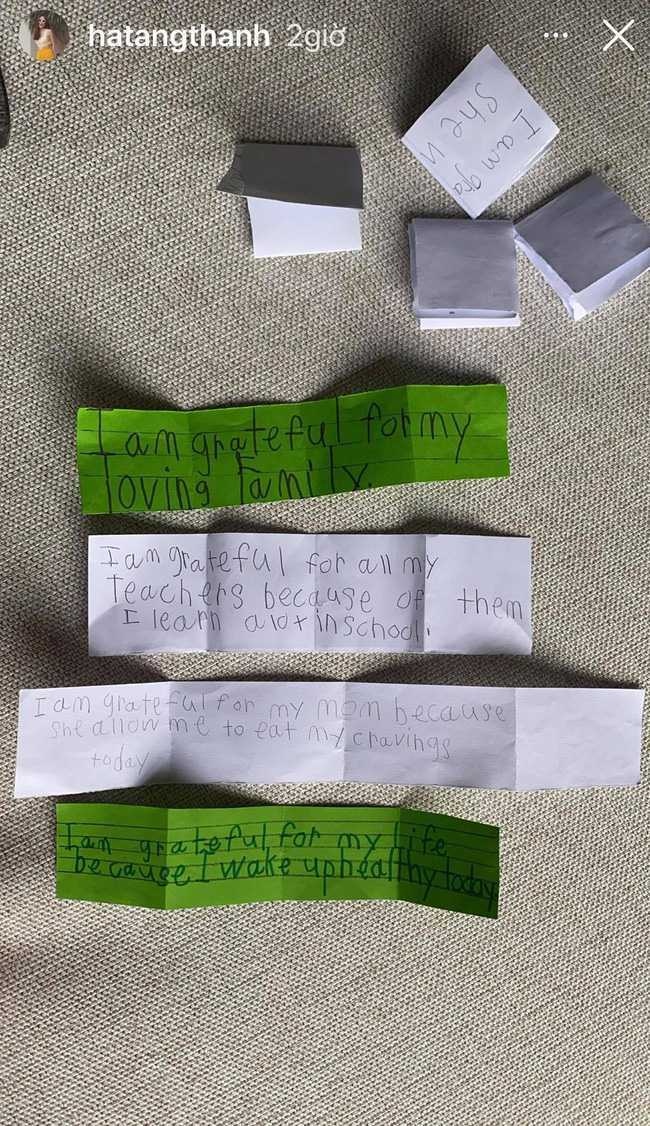 hatangthanh 2giờ
I am gra
she
I am grateful for my
loving family.
I am grateful for all my
Teachers because of them
I learn a lot in school.
I am grateful for my mom because
she allow me to eat my cravings
today
I am grateful for my life
because I wake up healthy today